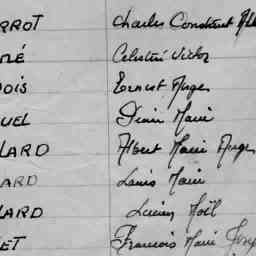 RROT Charles Constant
né Celestin Victor
DOIS Ernest Auger
UEL Marie
LARD Albert Marie Auger
ARD Louis Marie
LARD Lucien Noël
ET Francois Marie Josep